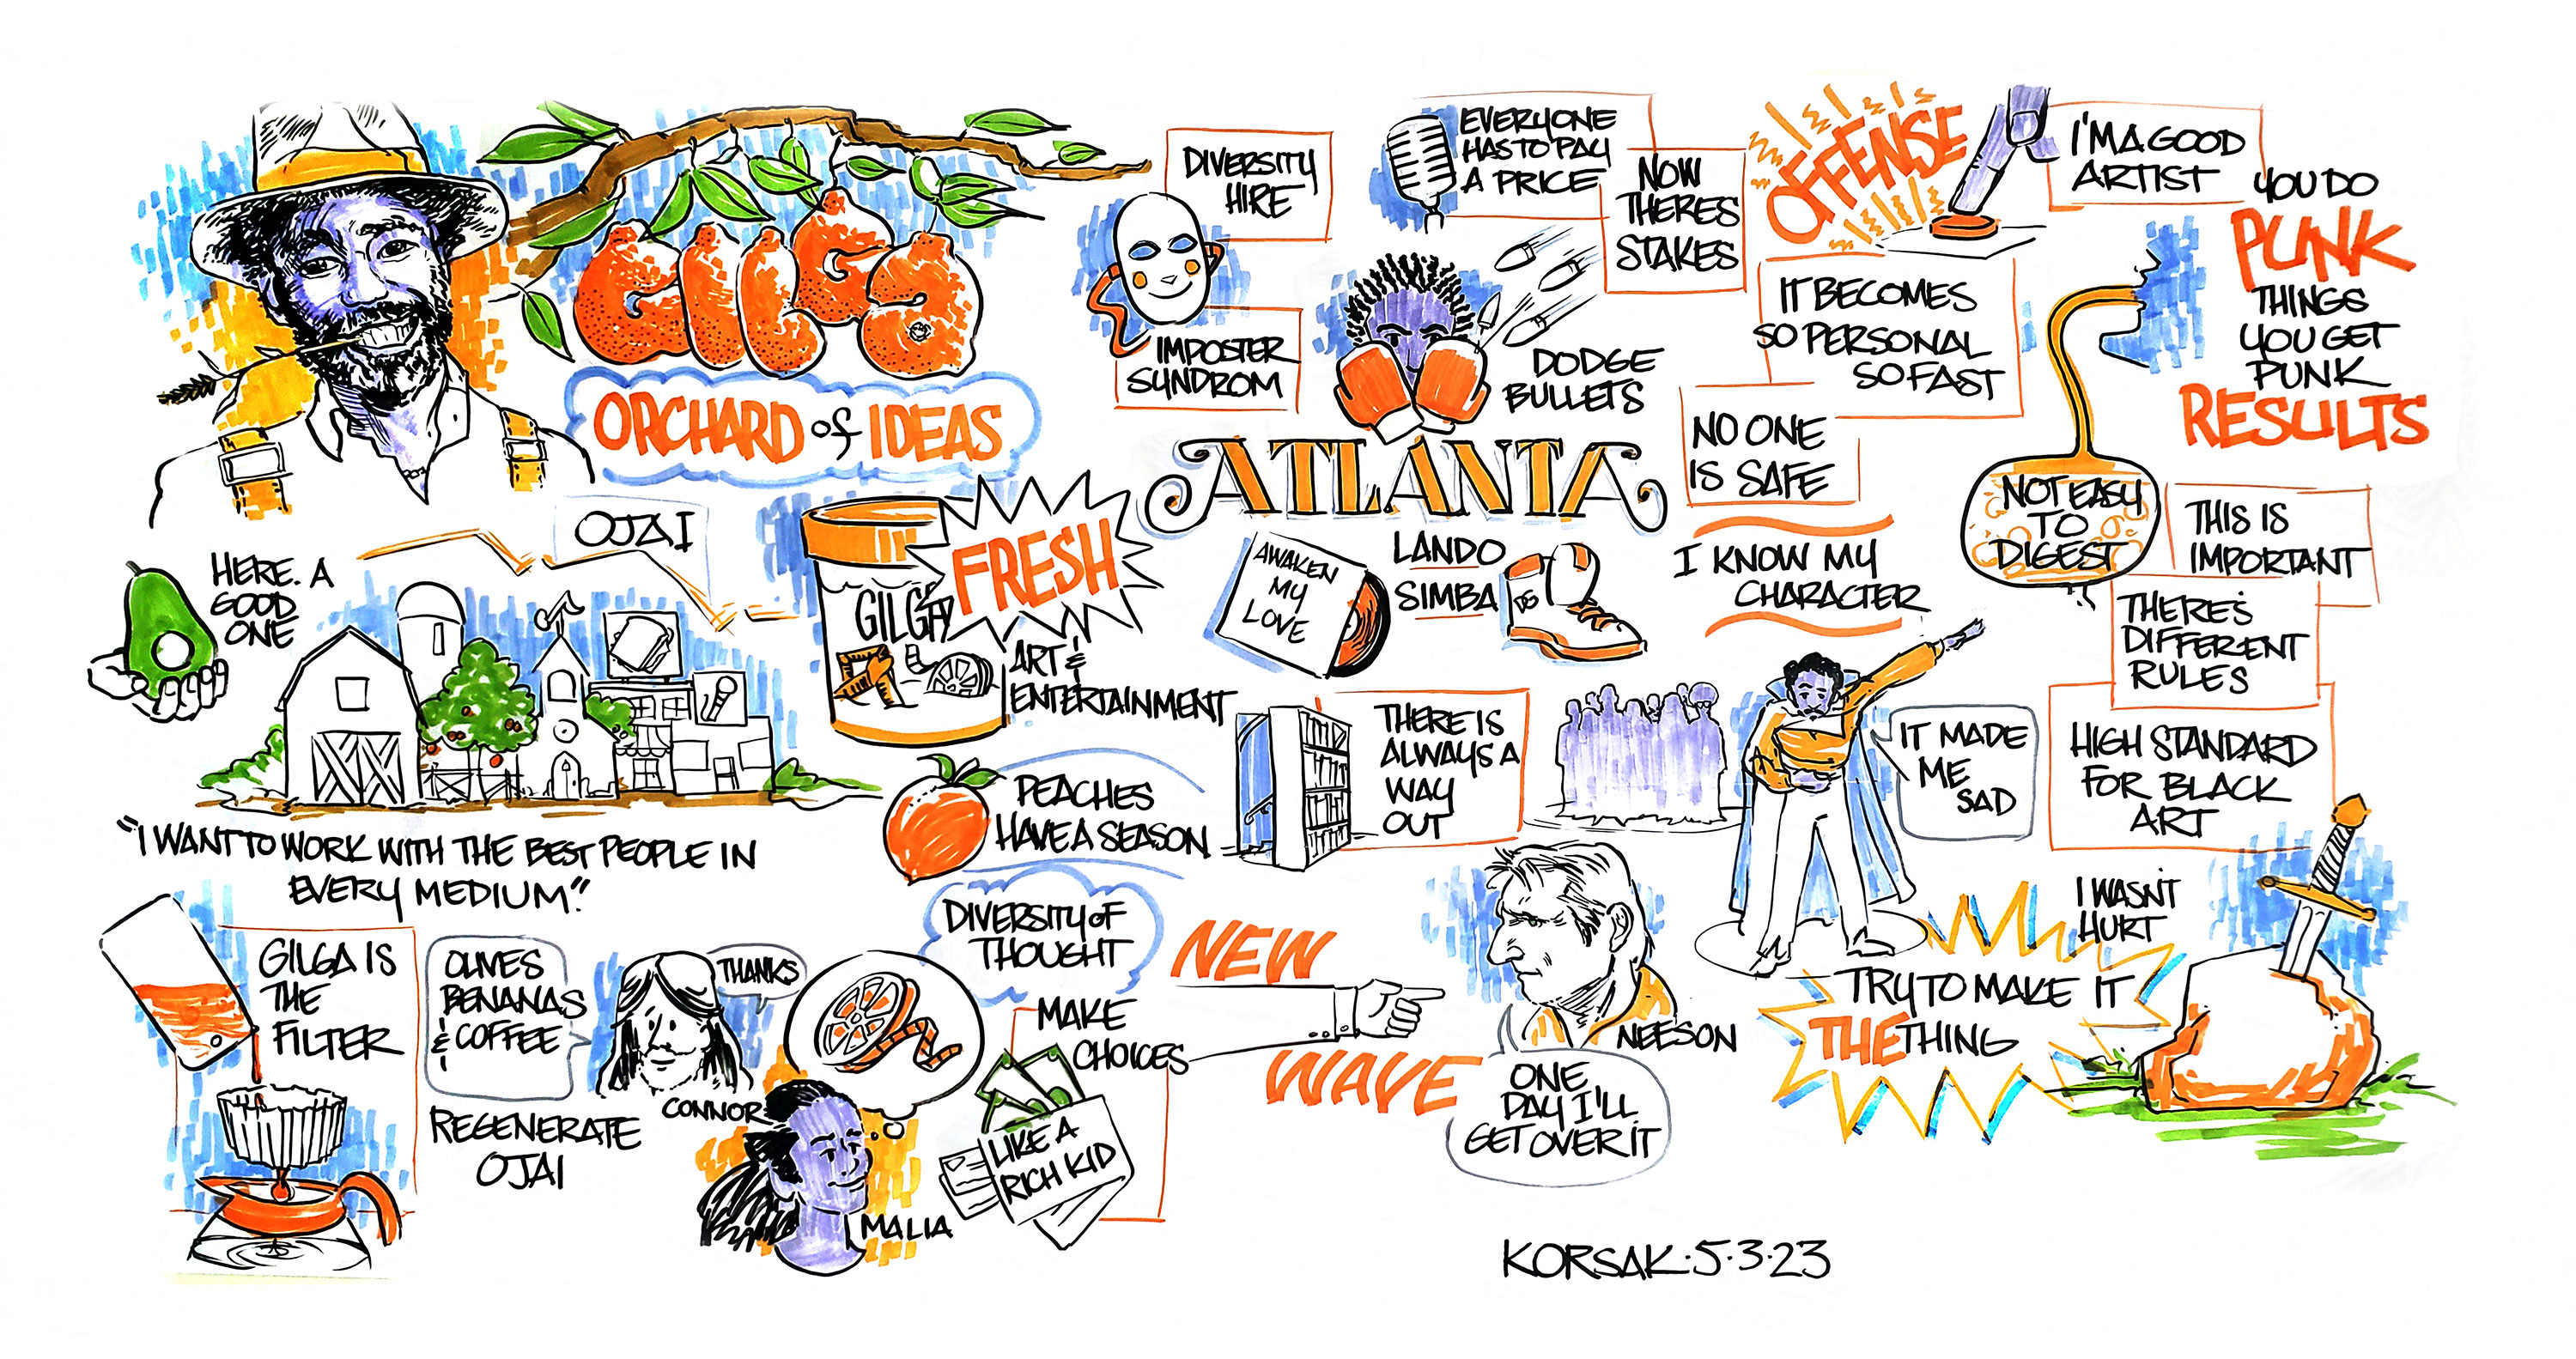 GILGA
ORCHARD of IDEAS
OJAI
HERE. A
GOOD
ONE
"I WANT TO WORK WITH THE BEST PEOPLE IN
EVERY MEDIUM."
GILGA IS
THE
FILTER
OLIVES
BENANAS
& COFFEE
REGENERATE
OJAI
THANKS
CONNOR
MALIA
FRESH
GILGA
ART &
ENTERTAINMENT
PEACHES
HAVE A SEASON
DIVERSITY OF
THOUGHT
MAKE
CHOICES
LIKE A
RICH KID
DIVERSITY
HIRE
IMPOSTER
SYNDROM
EVERYONE
HAS TO PAY
A PRICE
NOW
THERES
STAKES
DODGE
BULLETS
ATLANTA
AWAKEN
MY
LOVE
LANDO
SIMBA
DG
THERE IS
ALWAYS A
WAY
OUT
NEW
WAVE
NEESON
ONE
DAY I'LL
GET OVER IT
OFFENSE
I'M A GOOD
ARTIST
IT BECOMES
SO PERSONAL
SO FAST
NO ONE
IS SAFE
I KNOW MY
CHARACTER
IT MADE
ME
SAD
YOU DO
PUNK
THINGS
YOU GET
PUNK
RESULTS
NOT EASY
TO
DIGEST
THIS IS
IMPORTANT
THERE'S
DIFFERENT
RULES
HIGH STANDARD
FOR BLACK
ART
I WASN'T
HURT
TRY TO MAKE IT
THE THING
KORSAK·5·3·23